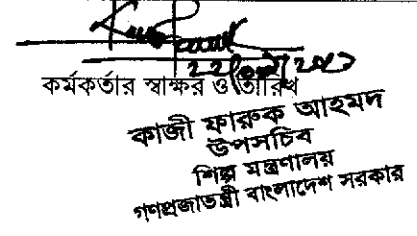 কর্মকর্তার স্বাক্ষর ও তারিখ
কাজী ফারুক আহমদ
উপসচিব
শিল্প মন্ত্রণালয়
গণপ্রজাতন্ত্রী বাংলাদেশ সরকার